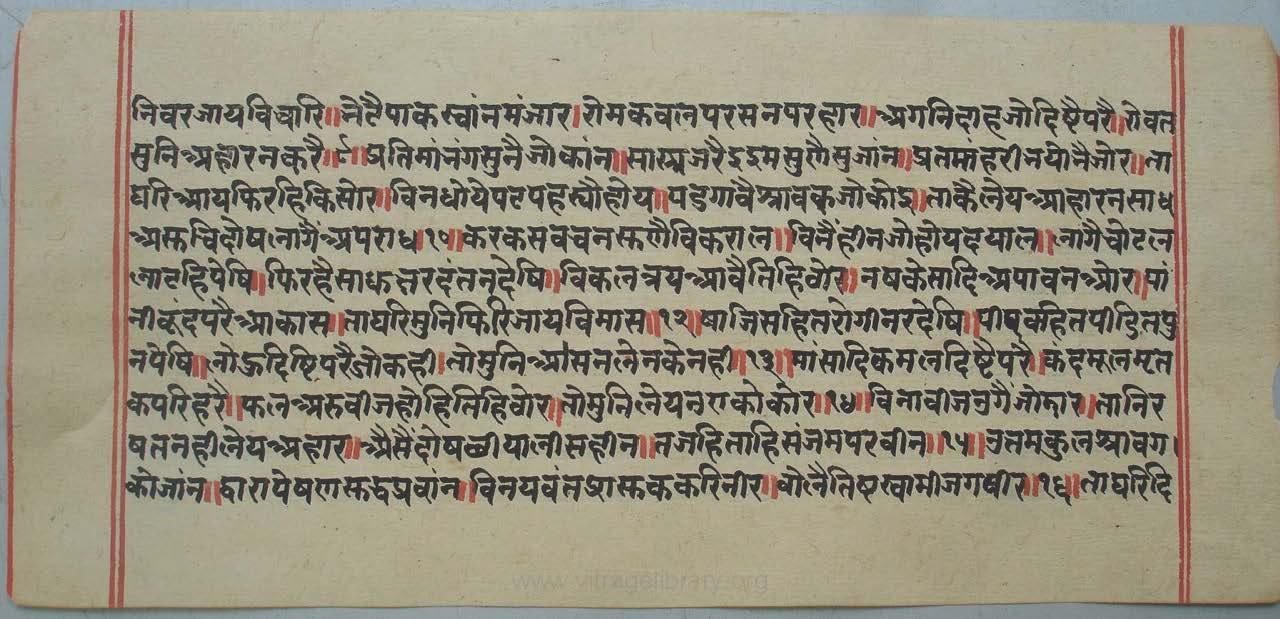 निवरजायविचारि॥भेटैपाकस्वांनमंजार।रोमकवलपरसनपरहार॥अगनिदाहजोदिष्टैपरै॥रोवत
सुनिअहारनकरै॥९॥प्रतिमांनंगसुनैजोकांन॥सास्त्रजरैइइमसुणैसुजांन॥प्रतमांहरीनयोनैजोर॥ता
घरिआयफिरहिकिसोर॥विनधोयेपटपहस्यौहोय॥पडगावैश्रावकजोकोइ॥ताकैलेयआहारनसाध
अस्तविदोषलागैअपराध॥१०॥करकसवचनस्तणैविकराल॥विनैहीनजोहोयदयाल॥लागैचोटल
लाटहिपेषि॥फिरहैसाधनरदंतनदेषि॥विकलत्रयआवैतिहिवोर॥नषकेसादिअपावनओर॥पां
नीकूंदपरैआकास॥ताघरिमुनिफिरिजायविमास॥१२॥षाजिसहितरोगीनरदेषि॥पीवकहितपीडितपु
नपेषि॥लोऊदिष्टिपरैजोकही।तोमुनिआसनलेनकेनही॥१३॥मांसादिकमलदिष्टैपरै।कंदमूलमृत
कपरिहरै॥फलअरुवीजहोहितिहिवोर॥तोमुनिलेयनएकोकोर॥१४॥विनावीजउगैजोडार॥तानिर
षतनहीलेयअहार॥अैसैंदोषछीयालीसहीन॥तजहिताहिसंजमपरवीन॥१५॥उतमकुलश्रावग।
कोजांन॥द्वारापेषणस्तद्धप्रवांन॥विनयवंतप्रास्तककरिनीर॥वोलैतिष्टस्वामीजगवीर॥१६॥ताघरिदि
www.vitragelibrary.org